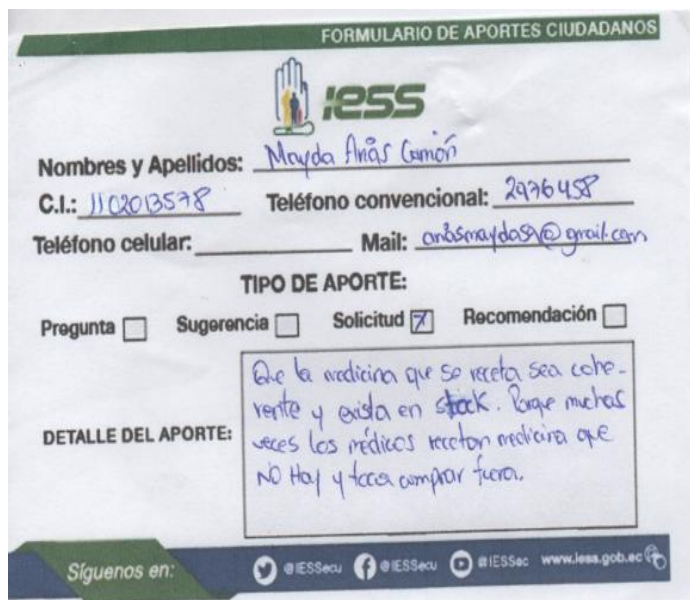 FORMULARIO DE APORTES CIUDADANOS
IESS
Nombres y Apellidos: Mayda Arias
C.I.: 1102013578 Teléfono convencional: 2976458
Teléfono celular: Mail:
TIPO DE APORTE:
Pregunta Sugerencia Solicitud Recomendación
Que la medicina que se receta sea cohe-
rente y exista en stock. Porque muchas
DETALLE DEL APORTE: veces los médicos recetan medicina que
NO Hay y toca comprar fuera.
Síguenos en: @IESSecu @IESSecu @IESSec www.iess.gob.ec